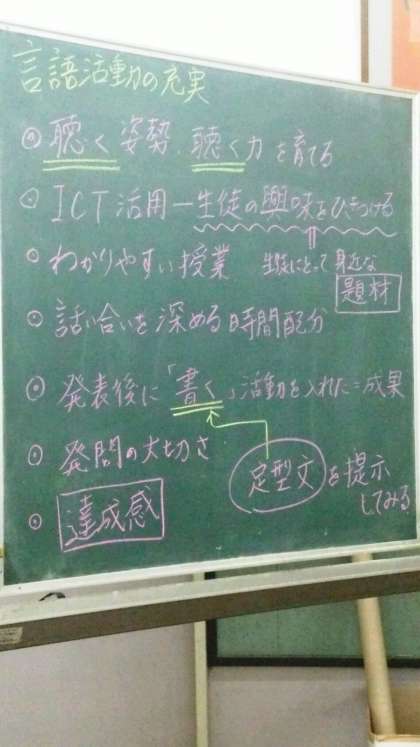 言語活動の充実
◎聴く姿勢、聴く力を育てる
○ICT活用―生徒の興味をひきつける
○わかりやすい授業 生徒にとって身近な
題材
○話し合いを深める時間配分
○発表後に「書く」活動を入れた=成果
○発問の大切さ
定型文を提示
してみる
○達成感